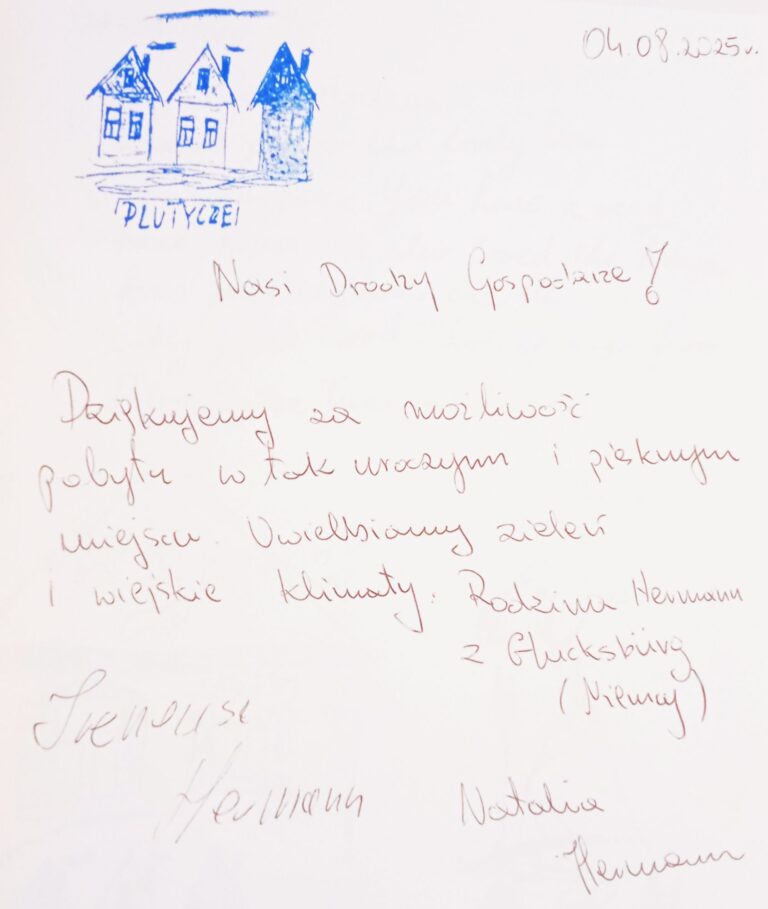 04.08.2025r.
PLUTYCZE
Nasi Drodzy Gospodarze!
Dziękujemy za możliwość
pobytu w tak uroczym i pięknym
miejscu. Uwielbiamy zieleń
i wiejskie klimaty. Rodzina Hermann
z Glucksbürg
(Niemcy)
Ireneusz
Hermann
Natalia
Hermann